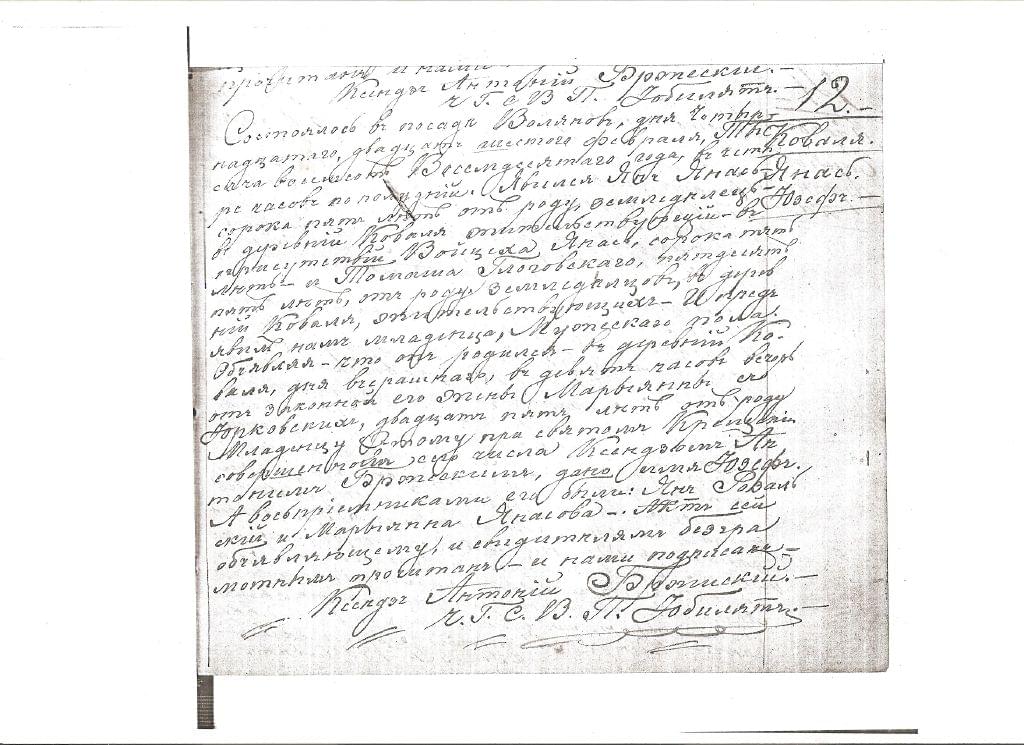 прочитанъ и нами
Ксендзъ Антоній Бржескій.—
Ч. Г. С. В. П. Юбилятъ.—
12.—
Коваля.
Янась.
Юзефъ.—
Состоялось въ посадѣ Воляновъ, дня Четыр-
надцатаго, двадцать шестого февраля, Тыс-
сяча восемсотъ Восемдесятаго года, въ
часовъ по полудній. Явился Янъ Янась
сорока пять лѣтъ отъ роду, земледѣлецъ
въ деревній Коваля жительствующій— въ
присутствій Войцеха Янась, сорока пять
лѣтъ— и Томаша Глоговскаго, пятдесятъ
пять лѣтъ, отъ роду, земледѣлцовъ, въ дерев
ній Коваля, жительствующихъ— И пред
явилъ намъ младенца, Мужескаго пола.
Объявляя— что онъ родился— въ деревній Ко-
валя, дня вчерашнаго, въ девять часовъ вечеръ
отъ законной его жены Марьянны его
Юрковскихъ, двадцать пять лѣтъ отъ роду
Младенцу Этому при святомъ Крещеніи
совершенномъ сего числа Ксендзомъ Ан
тонимъ Бржескимъ, дано имя Юзефъ.
А воспріемниками его были: Янъ
скій и Марьянна Янасова—. Актъ сей
объявляющему, и свидителямъ безгра
мотнымъ прочитанъ— и нами подписанъ—
Ксендзъ Антоній Бржескій.—
Ч. Г. С. В. П. Юбилятъ.—